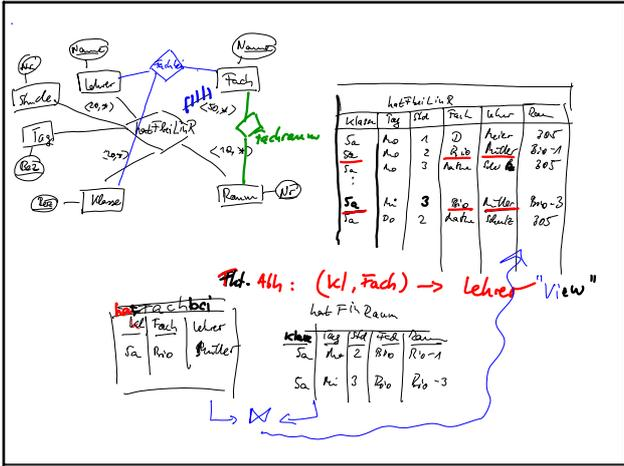 Name
Name
Nr
Lehrer
Fachbei
Fach
Stunde
<20,*>
<50,*>
Tag
hatFbeiLinR
Fachraum
Bez
<10,*>
Bez
Klasse
Raum
Nr
hatFbeiLinR
Klasse Tag Std Fach Lehrer Raum
5a Mo 1 D Meier 305
5a Mo 2 Bio Müller Bio-1
5a Mo 3 Mathe 305
5a Mi 3 Bio Müller Bio-3
5a Do 2 Mathe Schulz 305
Fkt. Abh: (Kl, Fach) → Lehrer
"View"
hatFachbei
Kl Fach Lehrer
5a Bio Müller
hatFinRaum
Klasse Tag Std Fach Raum
5a Mo 2 Bio Bio-1
5a Mi 3 Bio Bio-3